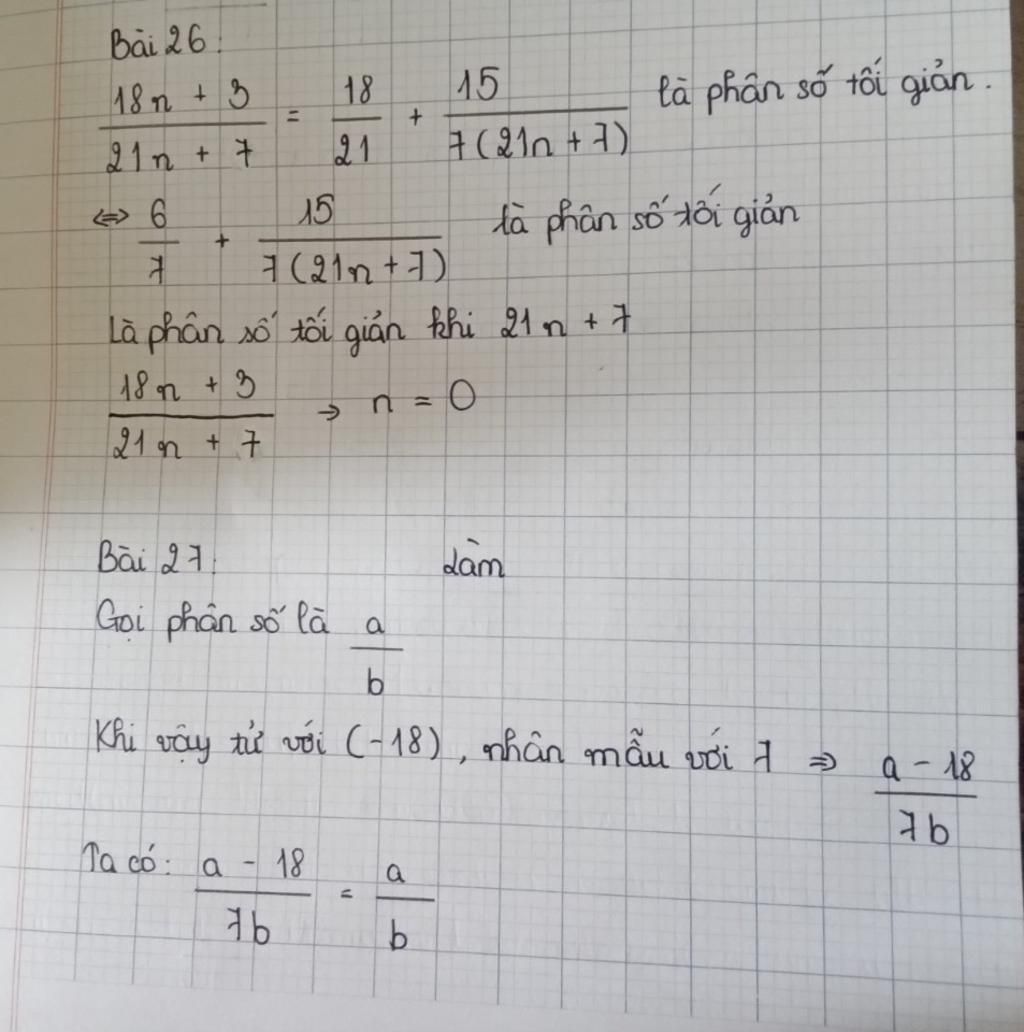 Bài 26:
18n + 3 / 21n + 7 = 18 / 21 + 15 / 7(21n + 7) là phân số tối giản.
⇔ 6 / 7 + 15 / 7(21n + 7) là phân số tối giản
Là phân số tối giản khi 21n + 7
18n + 3 / 21n + 7 → n = 0
Bài 27: Làm
Gọi phân số là a / b
Khi vậy tử với (-18), nhân mẫu với 7 ⇒ a - 18 / 7b
Ta có: a - 18 / 7b = a / b